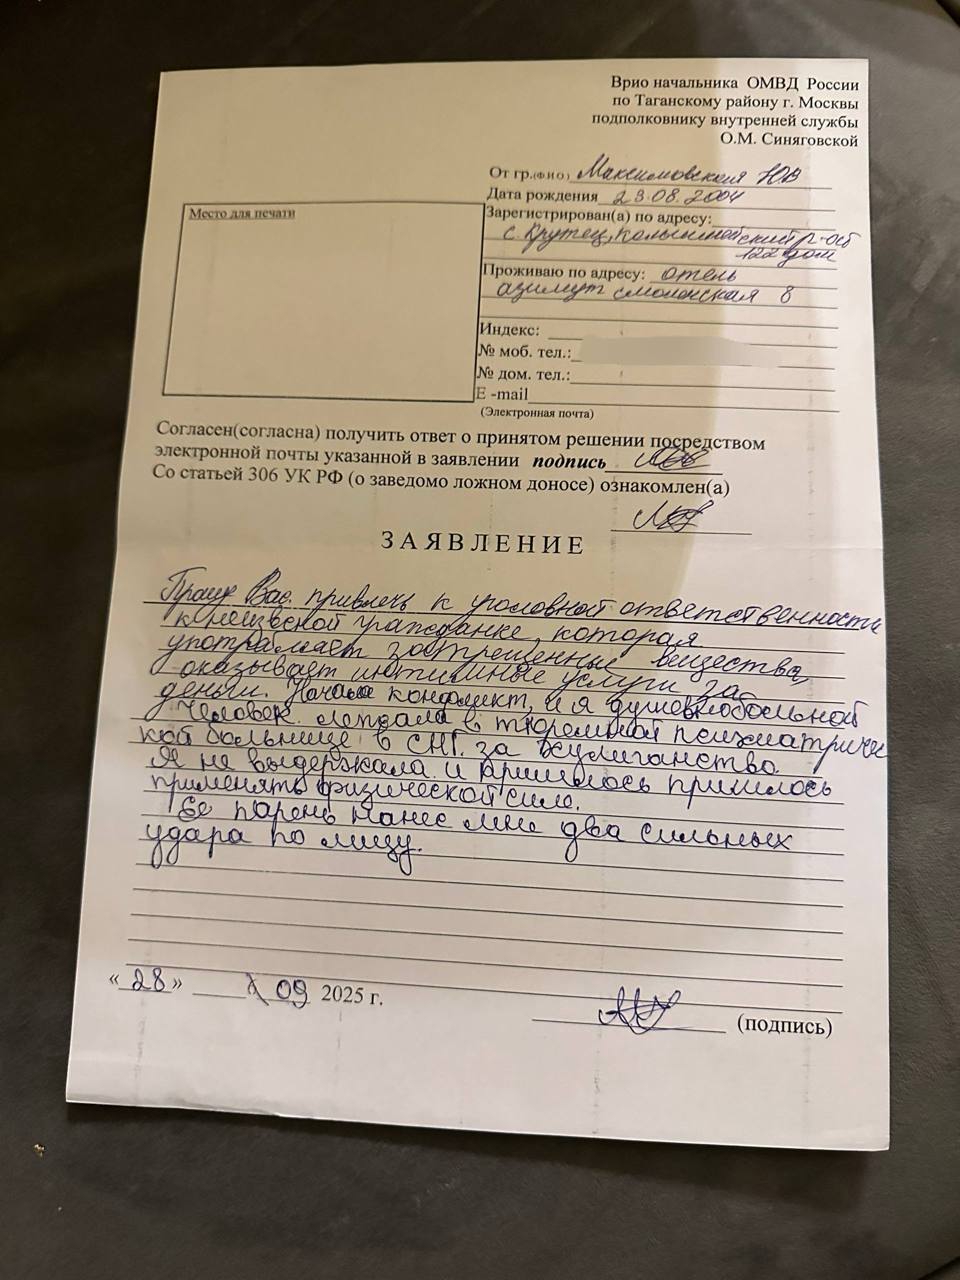 Врио начальника ОМВД России
по Таганскому району г. Москвы
подполковнику внутренней службы
О.М. Синяговской
От гр.(ФИО) Максимовская ЮВ
Дата рождения 23.08.2004
Место для печати
Зарегистрирован(а) по адресу:
с. Крутец, р-он
122 дом
Проживаю по адресу: отель
азимут смоленская 8
Индекс:
№ моб. тел.:
№ дом. тел.:
E -mail
(Электронная почта)
Согласен(согласна) получить ответ о принятом решении посредством
электронной почты указанной в заявлении подпись
Со статьей 306 УК РФ (о заведомо ложном доносе) ознакомлен(а)
ЗАЯВЛЕНИЕ
Прошу Вас привлечь к уголовной ответственности
гражданке, которая
употребляет запрещенные вещества,
оказывает интимные услуги за
деньги. конфликт, и я
Человек. лежала в тюремной психиатричес
кой больнице в СНГ. за хулиганство.
Я не выдержала и пришлось
применять физической силе.
Ее парень нанес мне два сильных
удара по лицу.
«28» 09 2025 г.
(подпись)